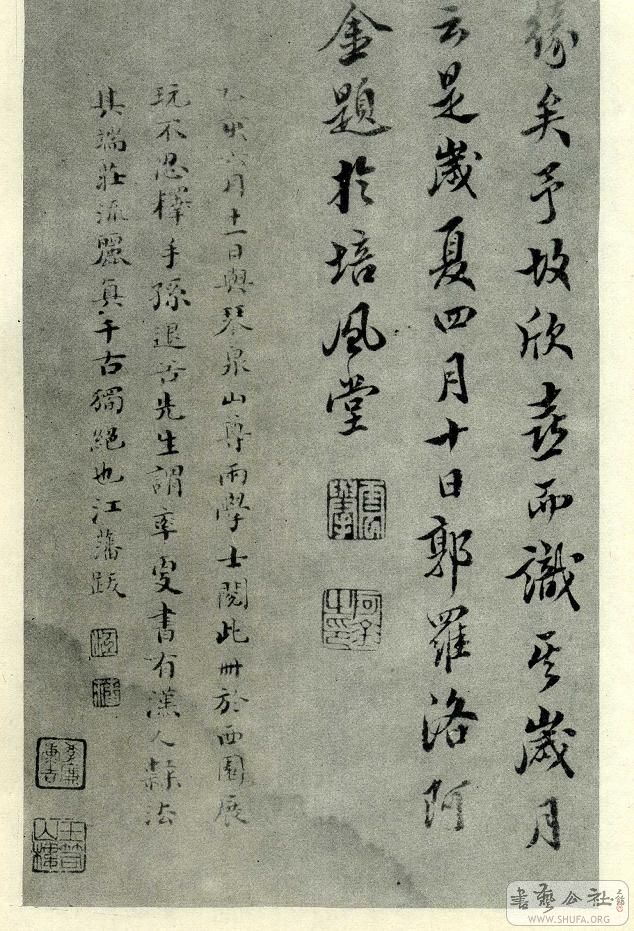 緣矣予故欣喜而識其歲月
云是歲夏四月十日郭羅洛阿
金題於培風堂
乙亥六月十一日與琴泉山尊兩學士閱此冊於西園展
玩不忍釋手孫退谷先生謂率更書有漢人隸法
其端莊流麗真千古獨絕也江藩跋
江
藩
書藝公社
WWW.SHUFA.ORG